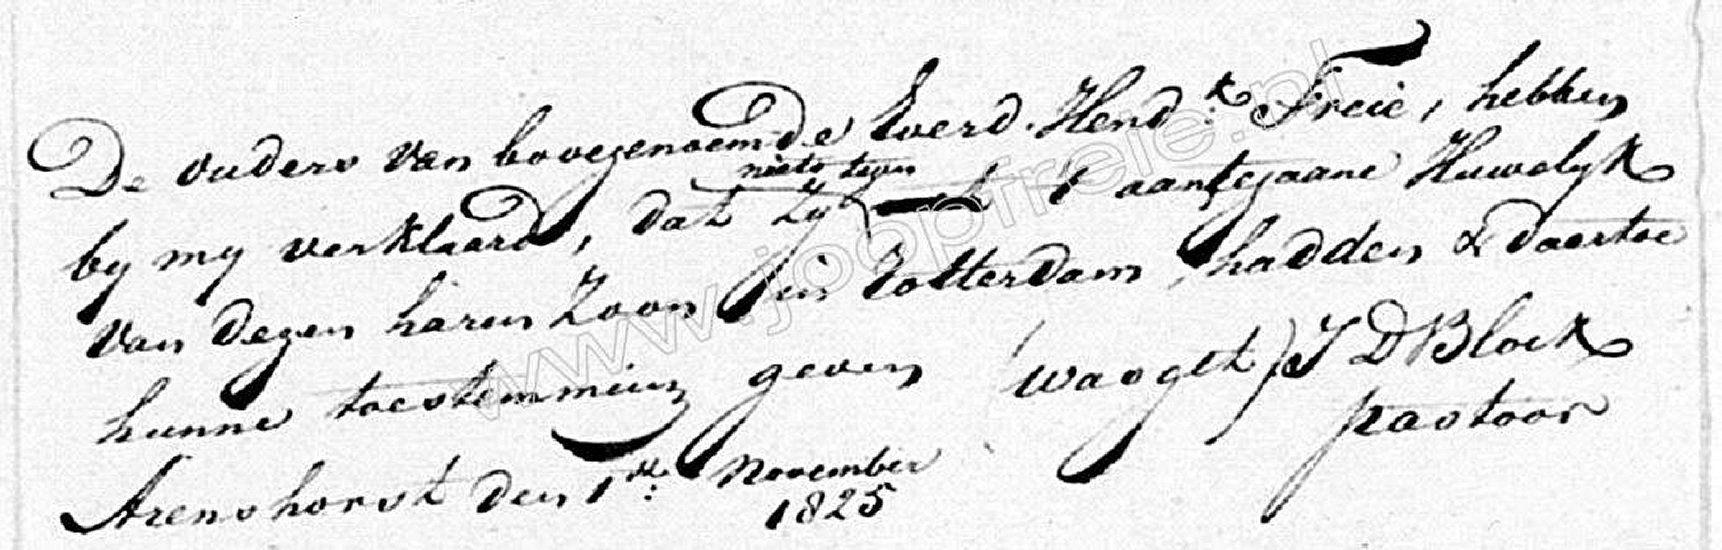 De ouders van bovegenoemde Everd. Hendk: Freie, hebben
niets tegen
by my verklaard, dat zy 't aantegaane Huwelyk
van dezen haren Zoon in Rotterdam, hadden & daartoe
hunne toestemming geven (waagth) J D Block
pastoor
Arenshorst den 1te: November
1825
www.joopfreie.nl